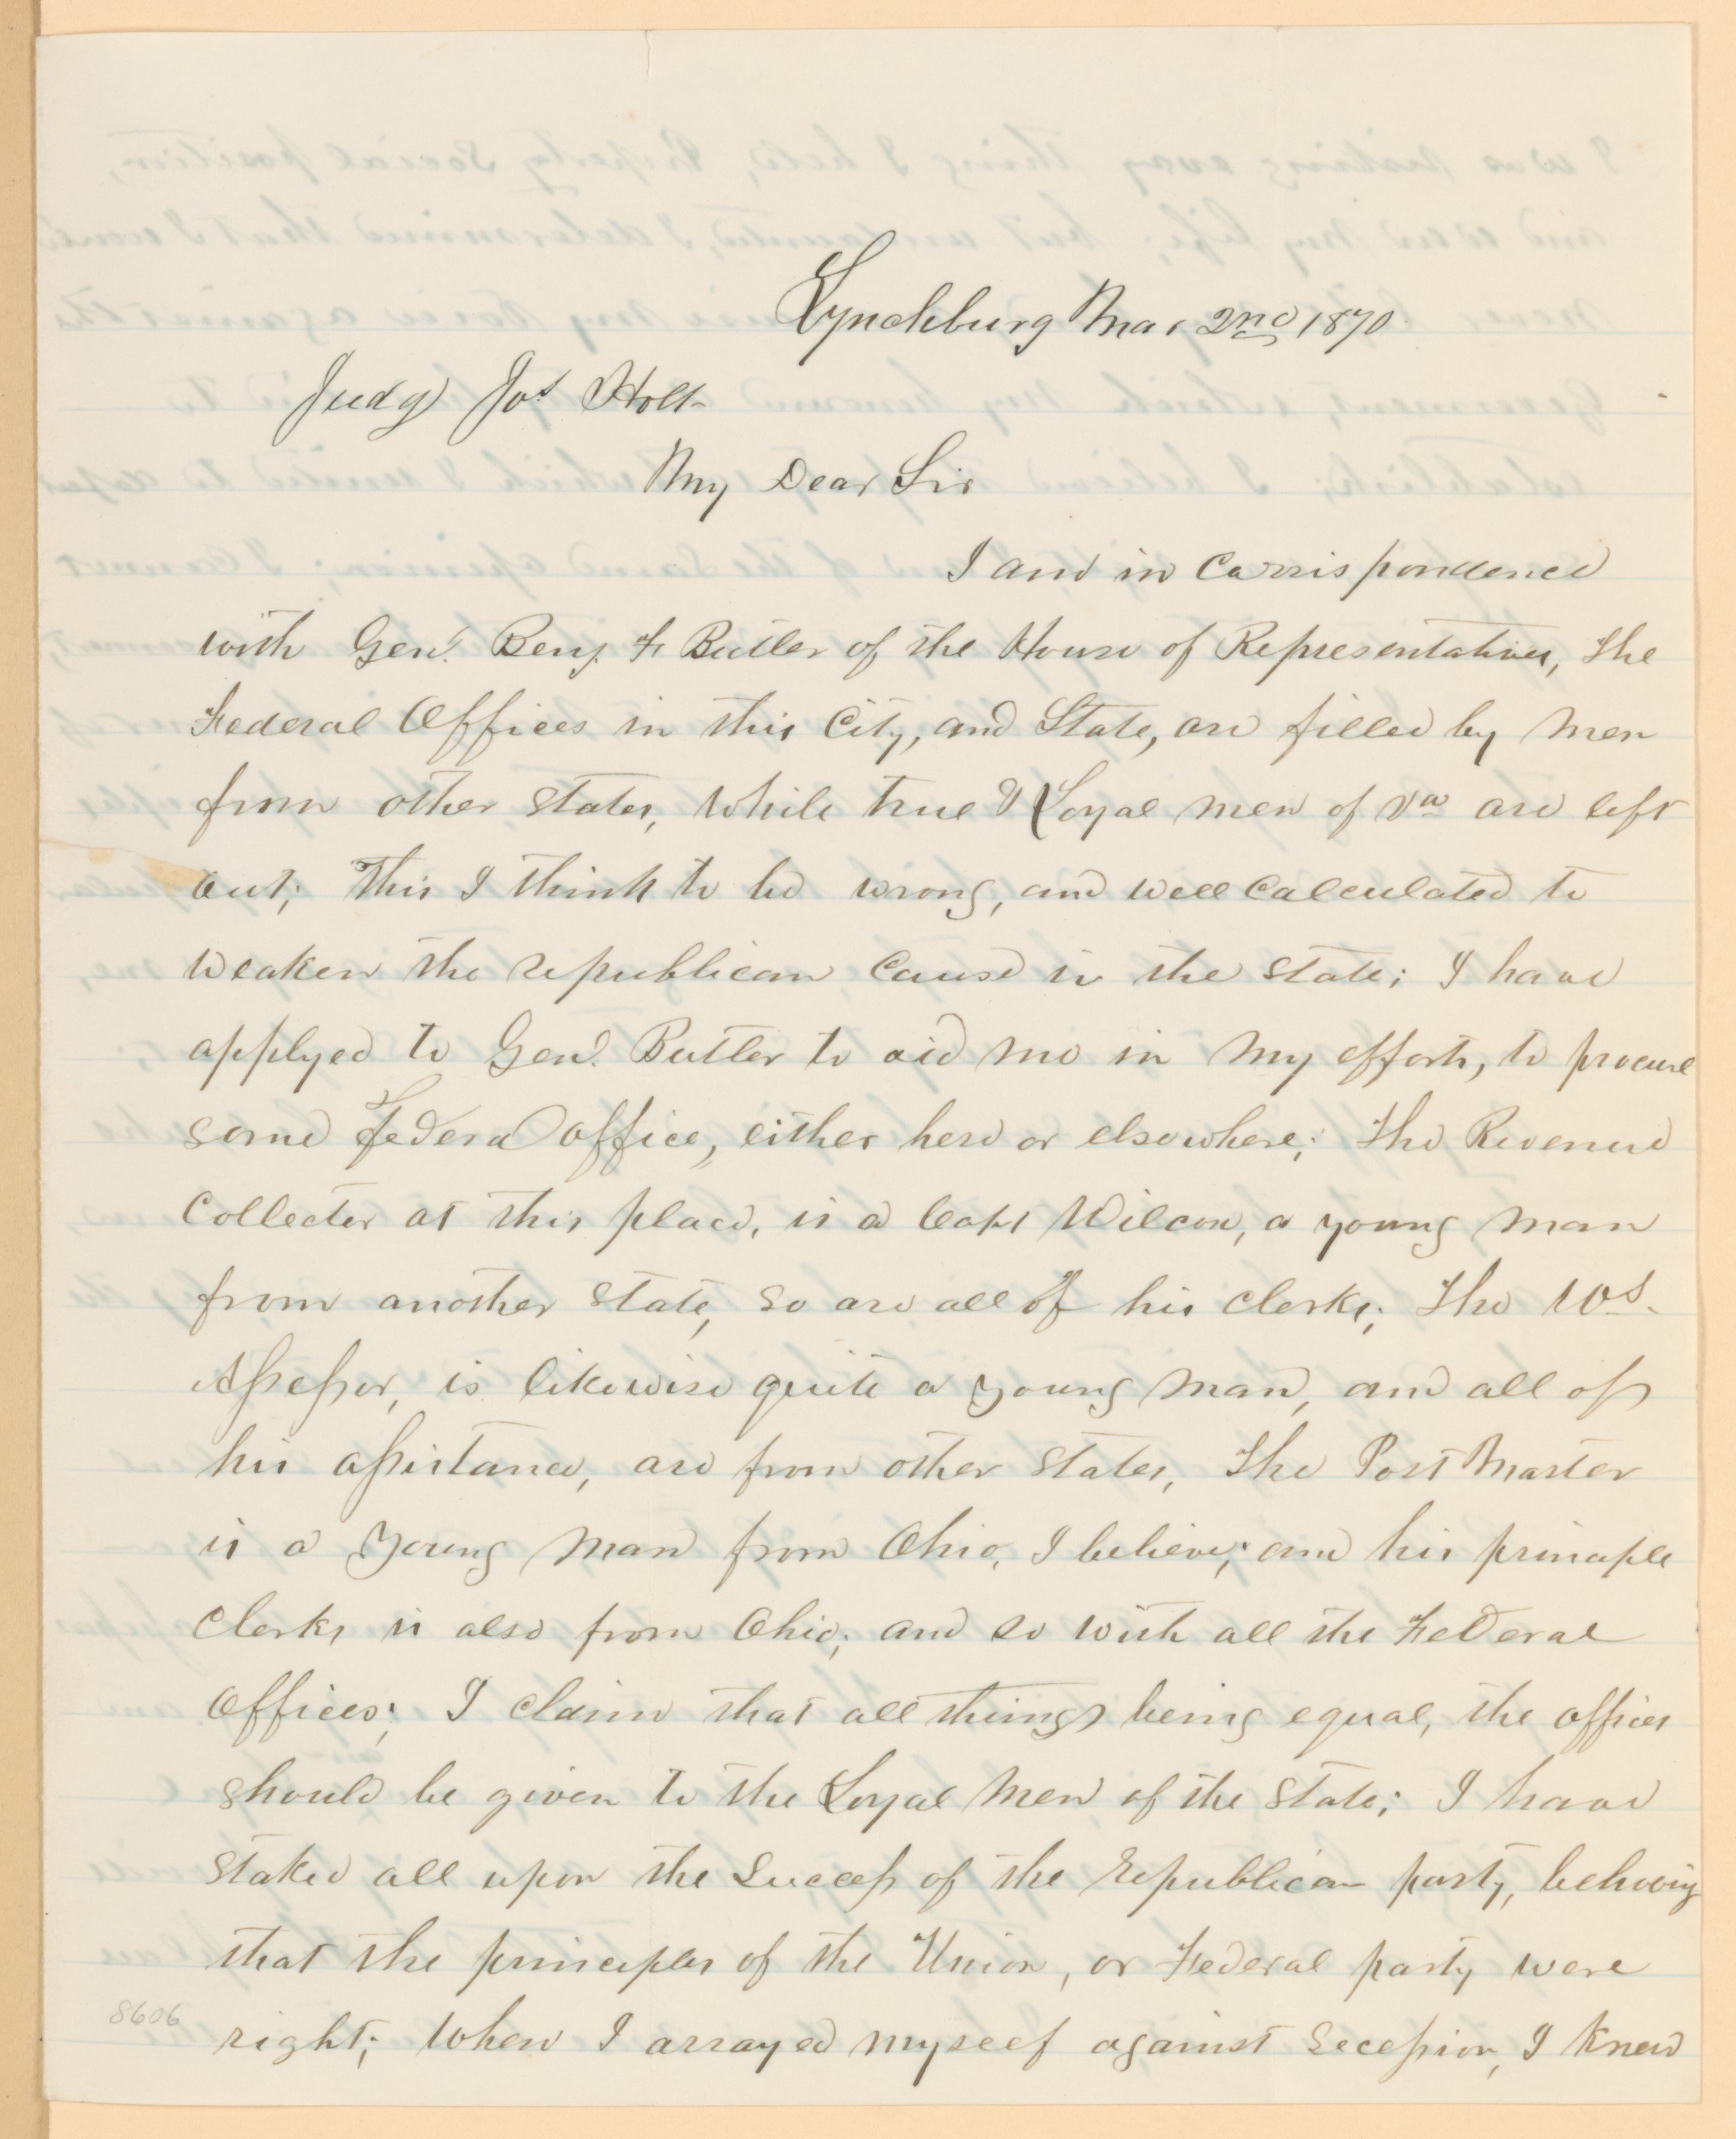 Lynchburg Mar 2nd 1870.
Judge Jos Holt
My Dear Sir
I am in Corrispondence
with Genl. Benj. F Butler of the House of Representatives, The
Federal Offices in this City, and State, are filled by men
from other states, while true & Loyal men of Va are left
out; This I think to be wrong, and well calculated to
weaken the republican cause in the state; I have
applyed to Genl. Butler to aid me in my efforts, to procure
some Federal office, either here or elsewhere; The Revenue
Collecter at this place, is a Capt Wilcox, a young man
from another state, so are all of his clerks; The
Assessor, is likewise quite a young man, and all of
his assistance, are from other states, The Post Master
is a young man from Ohio, I believe; and his principle
clerks is also from Ohio; and so with all the Federal
Offices; I claim that all things being equal, the offices
should be given to the Loyal men of the state; I have
staked all upon the success of the republican party, believing
that the principles of the Union, or Federal party were
right; When I arrayed myself against secession, I knew
8606